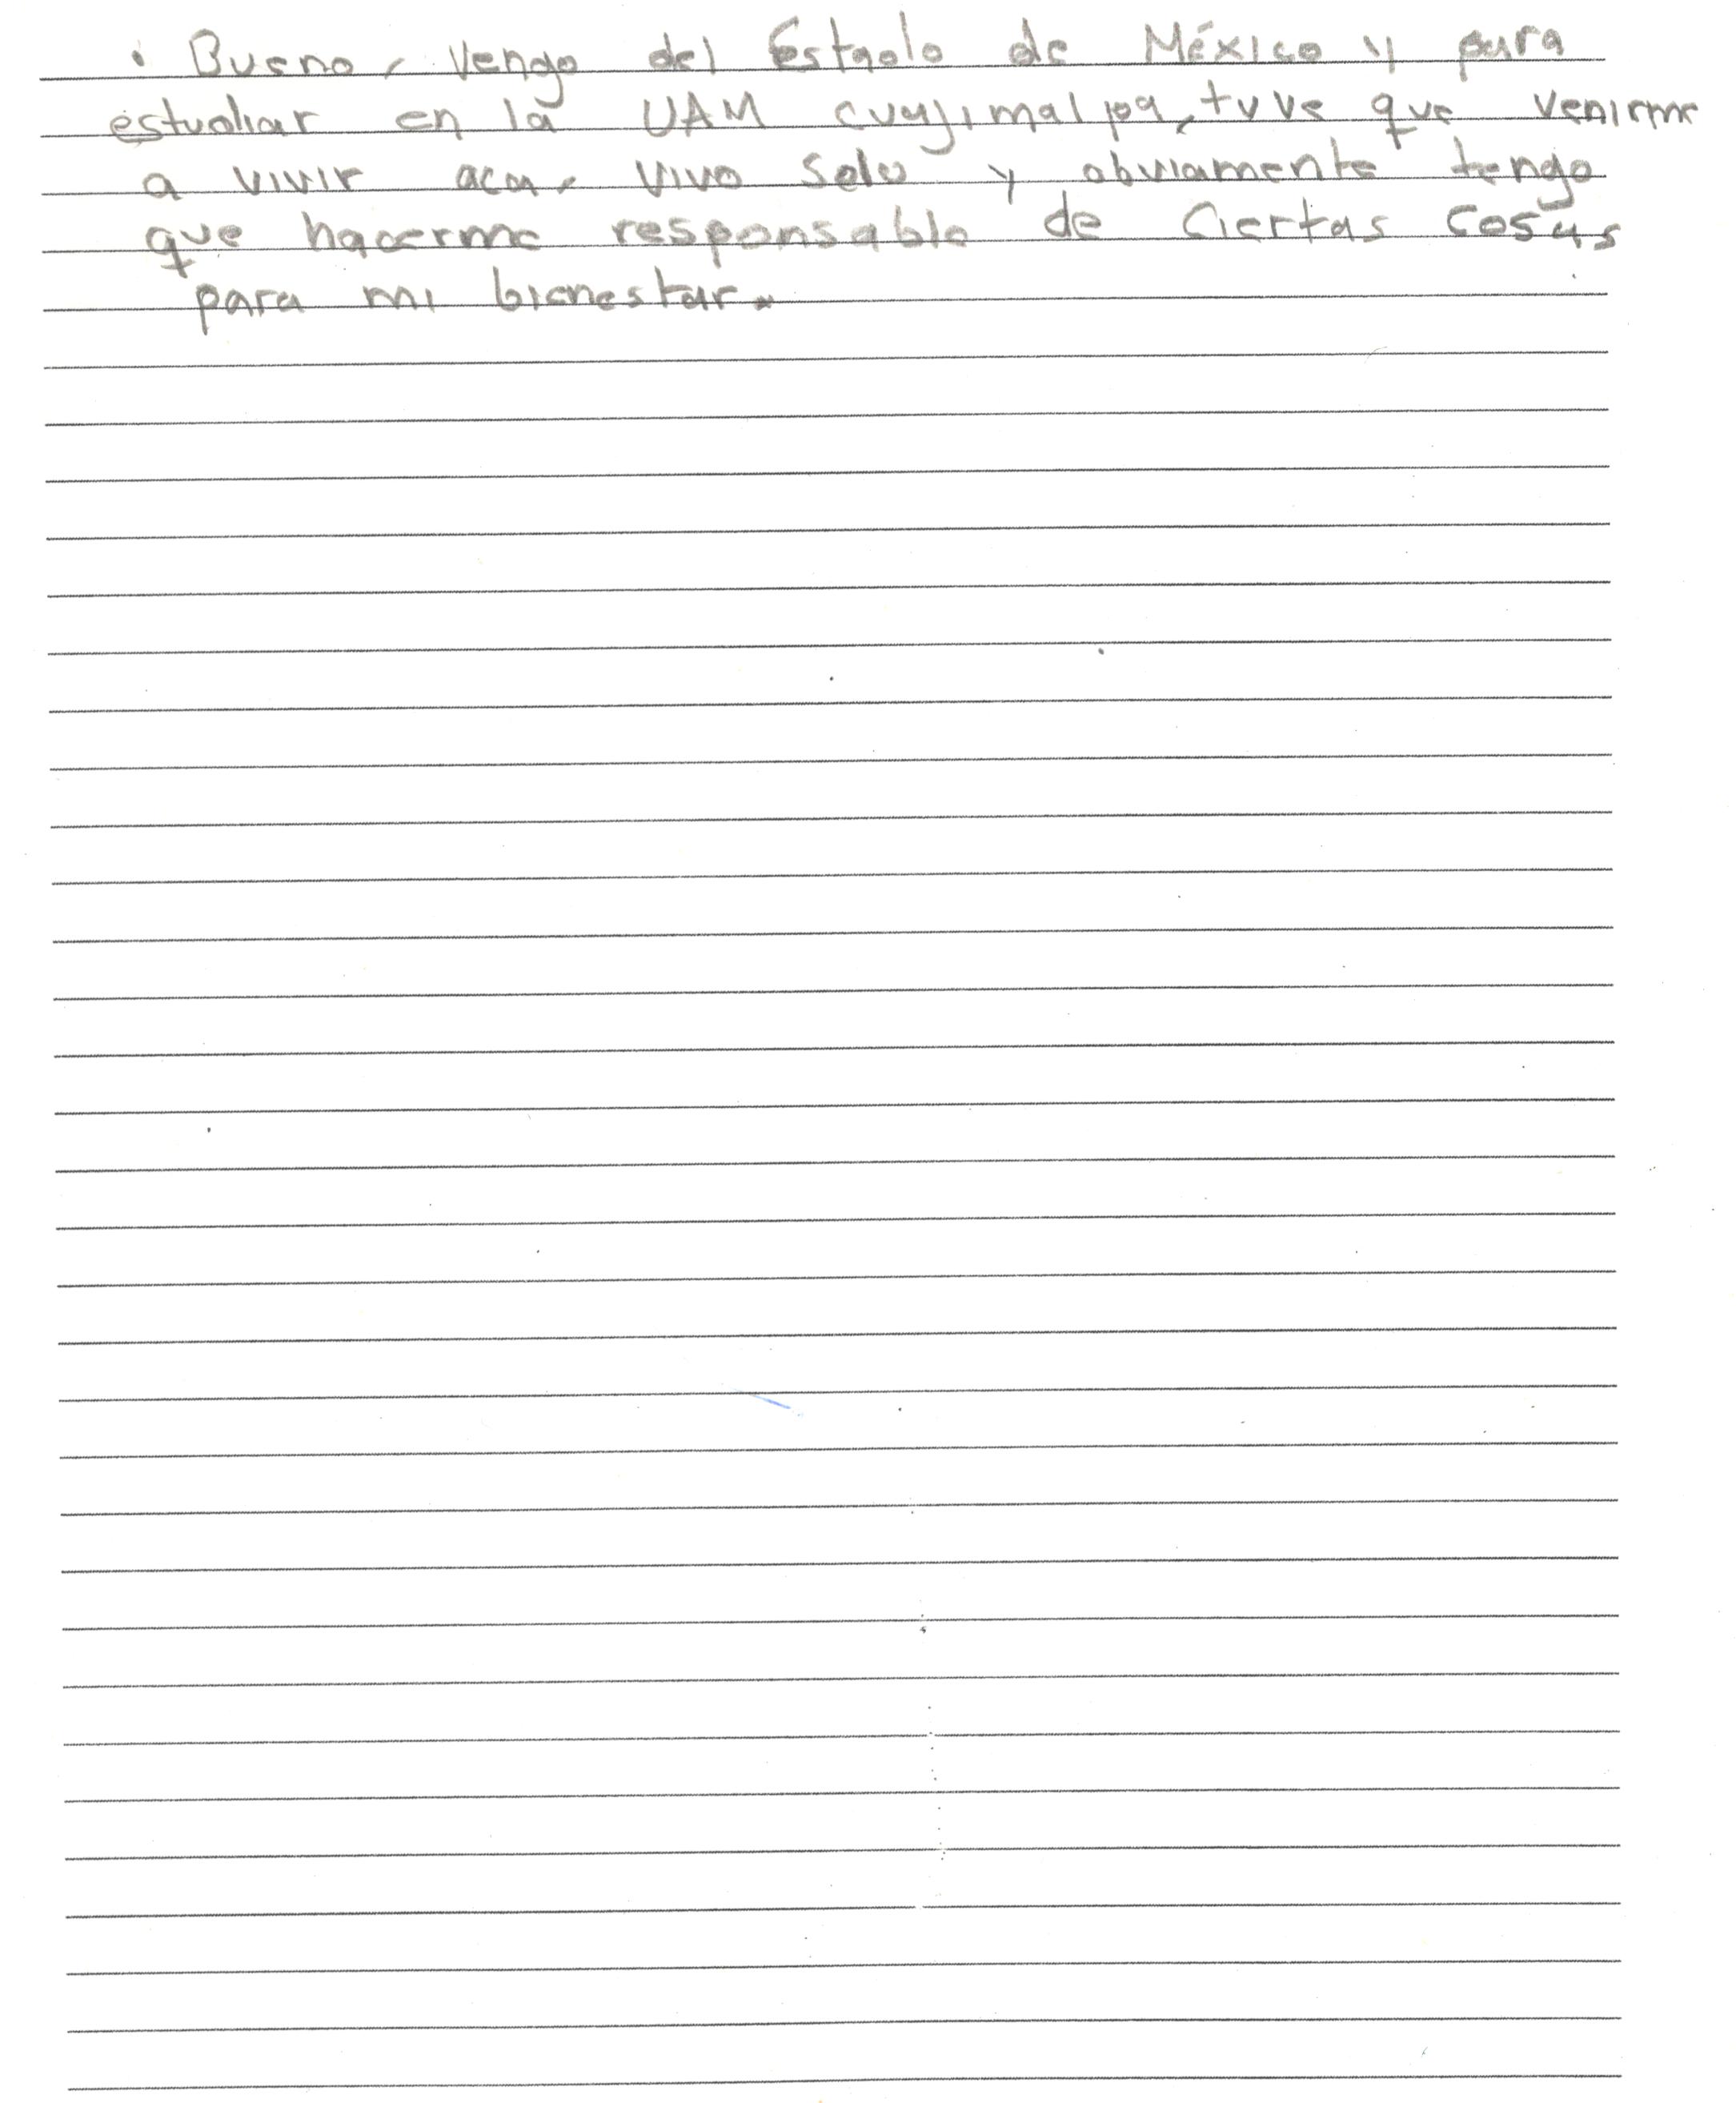 • Bueno, vengo del Estado de México y para
estudiar en la UAM cuajimalpa, tuve que venirme
a vivir aca, vivo solo y obviamente tengo
que hacerme responsable de ciertas cosas
para mi bienestar.